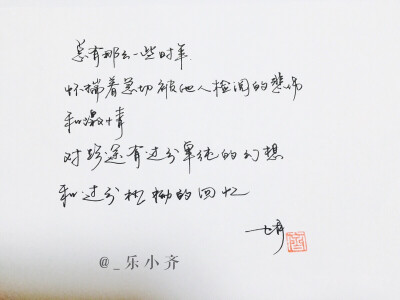 总有那么一些时年
怀揣着急切被他人检阅的悲伤
和激情
对途有过分单纯的幻想
和过分的回忆
@_乐小齐